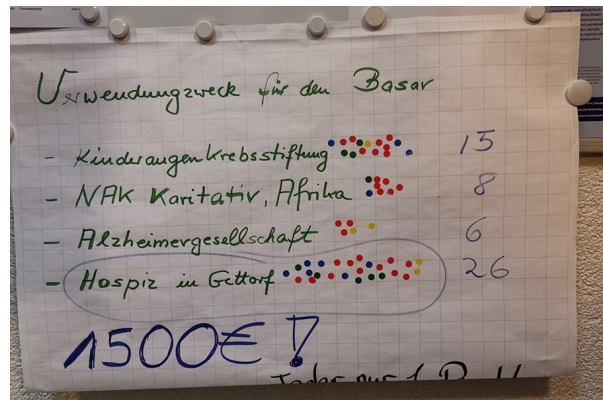 Verwendungszweck für den Basar
- Kinderaugenkrebsstiftung 15
- NAK Karitativ, Afrika 8
- Alzheimergesellschaft 6
- Hospiz in Gettorf 26
1500€!
Jeder nur 1